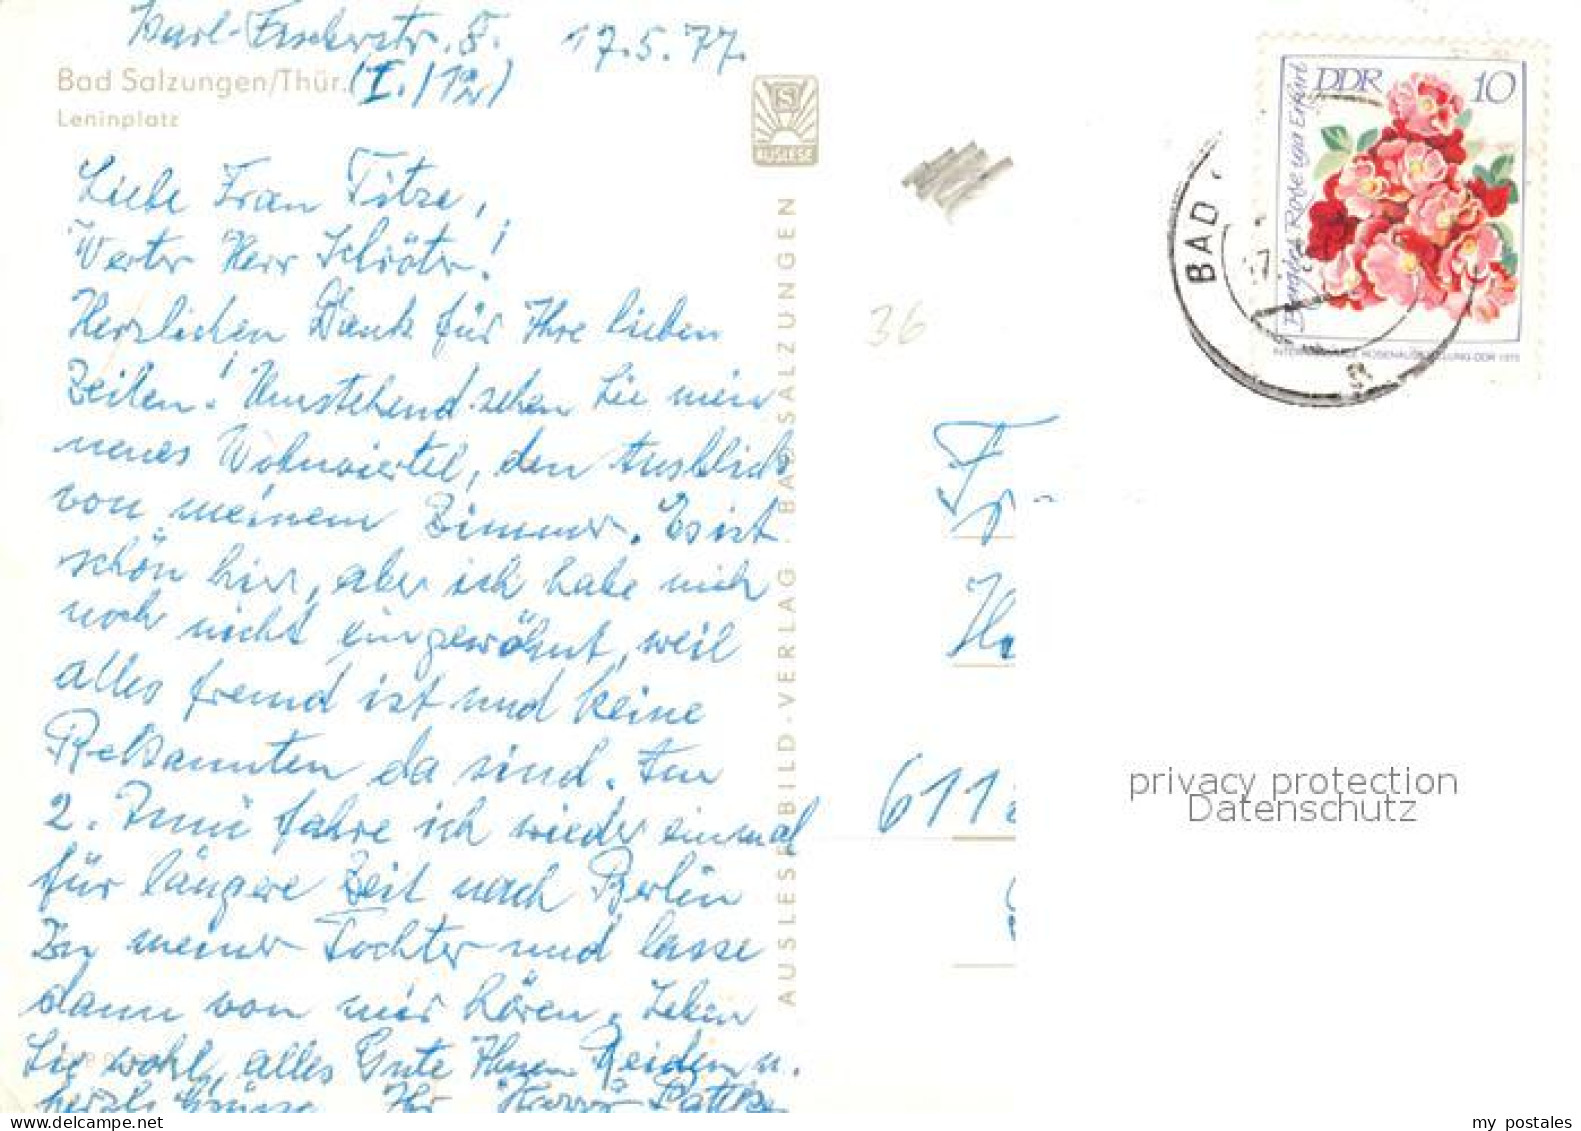 Karl-Fischerstr. 5. 17.5.77.
Bad Salzungen/Thür. (I./12)
Leninplatz
AUSLESE
Liebe Frau Titze,
Werter Herr Schröter!
Herzlichen Dank für Ihre lieben
Zeilen! Umstehend sehen Sie mein
neues Wohnviertel, den Ausblick
von meinem Zimmer. Es ist
schön hier, aber ich habe mich
noch nicht eingewöhnt, weil
alles fremd ist und keine
Bekannten da sind. Am
2. Juni fahre ich wieder einmal
für längere Zeit nach Berlin
zu meiner Tochter und lasse
dann von mir hören. Leben
Sie wohl, alles Gute Ihnen Beiden u.
herzl. Grüße Ihr
AUSLESE-BILD-VERLAG · BAD SALZUNGEN
36
DDR 10
BAD
611
privacy protection
Datenschutz
my postales